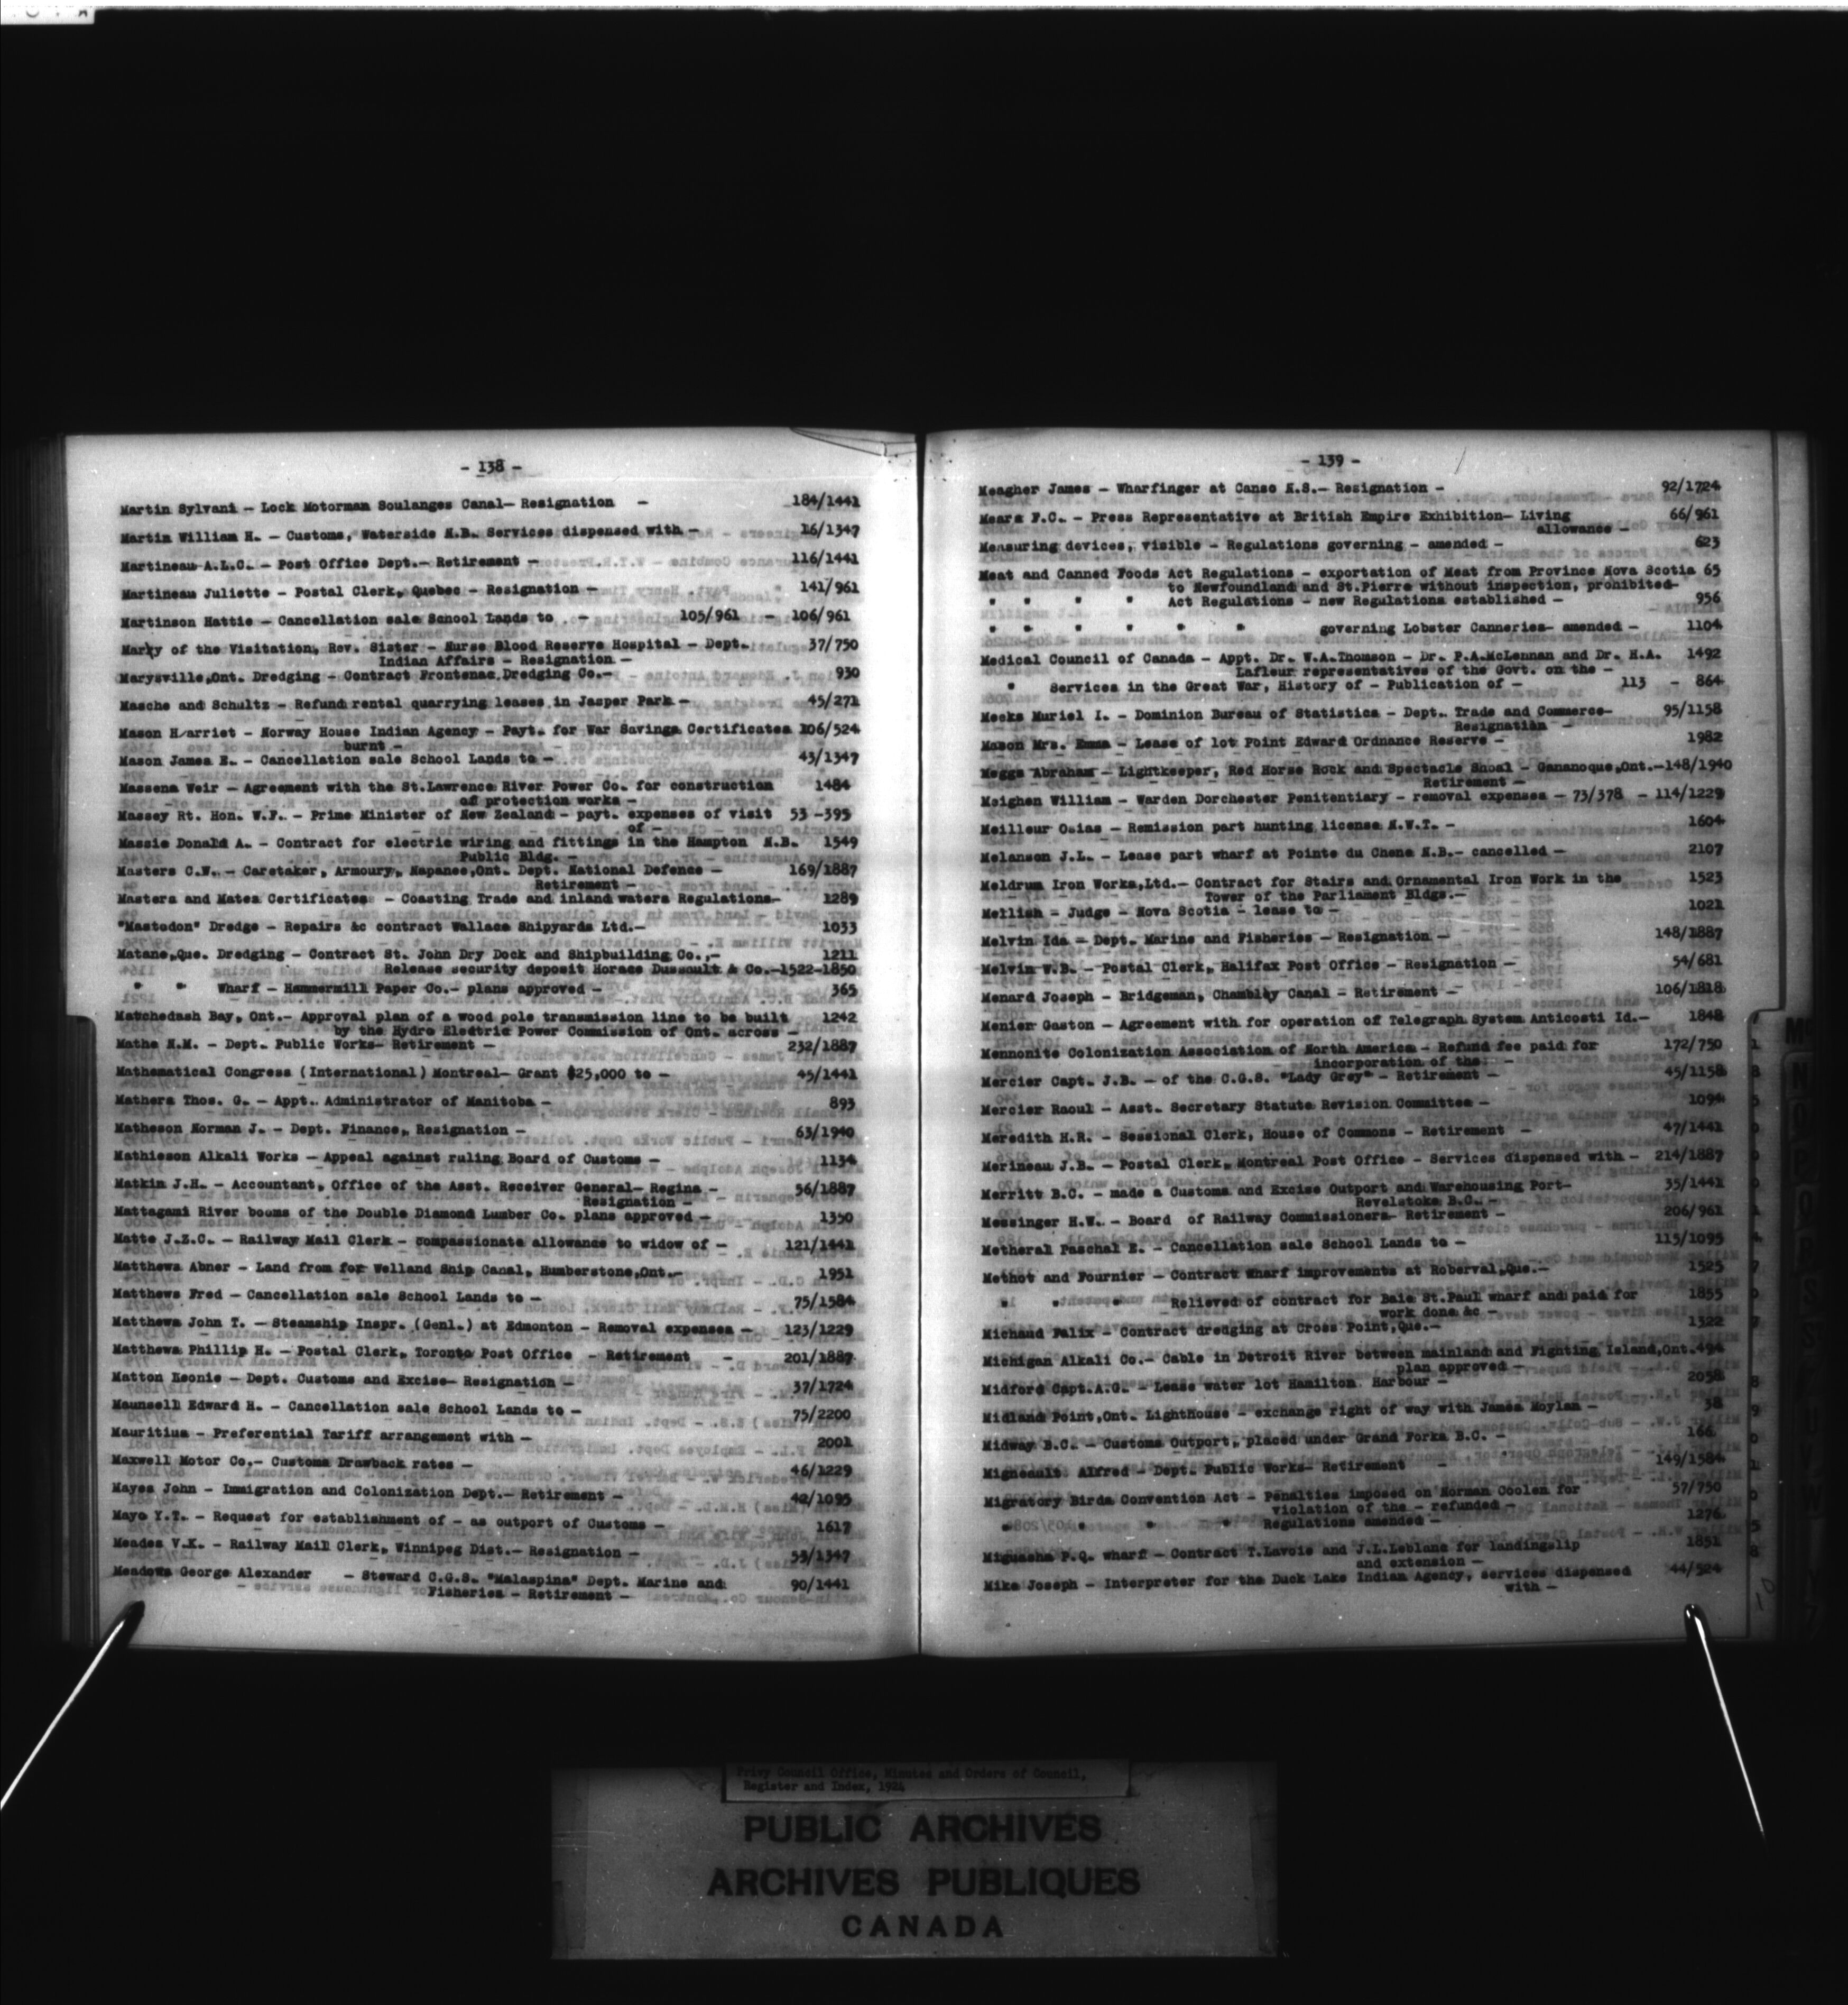 - 138 -
Martin Sylvani - Lock Motorman Soulanges Canal- Resignation - 184/1441
Martin William H. - Customs, Waterside N.B. Services dispensed with - 16/1347
Martineau A.L.C. - Post Office Dept.- Retirement - 116/1441
Martineau Juliette - Postal Clerk, Quebec - Resignation - 141/961
Martinson Hattie - Cancellation sale School Lands to - 105/961 - 106/961
Mary of the Visitation, Rev. Sister - Nurse Blood Reserve Hospital - Dept. 37/750
Indian Affairs - Resignation -
Marysville,Ont. Dredging - Contract Frontenac Dredging Co.- 930
Masche and Schultz - Refund rental quarrying leases in Jasper Park - 45/271
Mason Harriet - Norway House Indian Agency - Payt. for War Savings Certificates 106/524
burnt -
Mason James E. - Cancellation sale School Lands to - 43/1347
Massena Weir - Agreement with the St.Lawrence River Power Co. for construction 1484
of protection works -
Massey Rt. Hon. W.F. - Prime Minister of New Zealand - payt. expenses of visit 53 -395
of -
Massie Donald A. - Contract for electric wiring and fittings in the Hampton N.B. 1549
Public Bldg. -
Masters C.W. - Caretaker, Armoury, Napanee,Ont. Dept. National Defence - 169/1887
Retirement -
Masters and Mates Certificates - Coasting Trade and inland waters Regulations- 1289
"Mastodon" Dredge - Repairs &c contract Wallace Shipyards Ltd.- 1033
Matane,Que. Dredging - Contract St. John Dry Dock and Shipbuilding Co.,- 1211
Release security deposit Horace Dussault & Co.-1522-1850
" " Wharf - Hammermill Paper Co.- plans approved - 365
Matchedash Bay, Ont.- Approval plan of a wood pole transmission line to be built 1242
by the Hydro Electric Power Commission of Ont. across -
Mathe N.M. - Dept. Public Works- Retirement - 232/1887
Mathematical Congress (International) Montreal- Grant $25,000 to - 45/1441
Mathers Thos. G. - Appt. Administrator of Manitoba - 893
Matheson Norman J. - Dept. Finance, Resignation - 63/1940
Mathieson Alkali Works - Appeal against ruling Board of Customs - 1134
Matkin J.H. - Accountant, Office of the Asst. Receiver General- Regina - 56/1887
Resignation -
Mattagami River booms of the Double Diamond Lumber Co. plans approved - 1350
Matte J.Z.C. - Railway Mail Clerk - compassionate allowance to widow of - 121/1441
Matthews Abner - Land from for Welland Ship Canal, Humberstone,Ont.- 1951
Matthews Fred - Cancellation sale School Lands to - 75/1584
Matthews John T. - Steamship Inspr. (Genl.) at Edmonton - Removal expenses - 123/1229
Matthews Phillip H. - Postal Clerk, Toronto Post Office - Retirement - 201/1887
Matton Leonie - Dept. Customs and Excise- Resignation - 37/1724
Maunsell Edward H. - Cancellation sale School Lands to - 75/2200
Mauritius - Preferential Tariff arrangement with - 2001
Maxwell Motor Co.- Customs Drawback rates - 46/1229
Mayes John - Immigration and Colonization Dept.- Retirement - 42/1095
Mayo Y.T. - Request for establishment of - as outport of Customs - 1617
Meades V.K. - Railway Mail Clerk, Winnipeg Dist.- Resignation - 53/1347
Meadows George Alexander - Steward C.G.S. "Malaspina" Dept. Marine and 90/1441
Fisheries - Retirement -
- 139 -
Meagher James - Wharfinger at Canso N.S.- Resignation - 92/1724
Mears F.C. - Press Representative at British Empire Exhibition- Living 66/961
allowance -
Measuring devices, visible - Regulations governing - amended - 623
Meat and Canned Foods Act Regulations - exportation of Meat from Province Nova Scotia 65
to Newfoundland and St.Pierre without inspection, prohibited-
" " " " Act Regulations - new Regulations established - 956
" " " " " " governing Lobster Canneries- amended - 1104
Medical Council of Canada - Appt. Dr. W.A.Thomson - Dr. P.A.McLennan and Dr. H.A. 1492
Lafleur representatives of the Govt. on the -
" Services in the Great War, History of - Publication of - 113 - 864
Meeks Muriel I. - Dominion Bureau of Statistics - Dept. Trade and Commerce- 95/1158
Resignation -
Mason Mrs. Emma - Lease of lot Point Edward Ordnance Reserve - 1982
Meggs Abraham - Lightkeeper, Red Horse Rock and Spectacle Shoal - Gananoque,Ont.-148/1940
Retirement -
Meighen William - Warden Dorchester Penitentiary - removal expenses - 73/378 - 114/1229
Meilleur Osias - Remission part hunting license N.W.T. - 1604
Melanson J.L. - Lease part wharf at Pointe du Chene N.B.- cancelled - 2107
Meldrum Iron Works,Ltd.- Contract for Stairs and Ornamental Iron Work in the 1523
Tower of the Parliament Bldgs.-
Mellish - Judge - Nova Scotia - lease to - 1021
Melvin Ida - Dept. Marine and Fisheries - Resignation - 148/1887
Melvin W.B. - Postal Clerk, Halifax Post Office - Resignation - 54/681
Menard Joseph - Bridgeman, Chambly Canal - Retirement - 106/1818
Menier Gaston - Agreement with for operation of Telegraph System Anticosti Id.- 1848
Mennonite Colonization Association of North America - Refund fee paid for 172/750
incorporation of the -
Mercier Capt. J.B. - of the C.G.S. "Lady Grey" - Retirement - 45/1158
Mercier Raoul - Asst. Secretary Statute Revision Committee - 1094
Meredith H.R. - Sessional Clerk, House of Commons - Retirement - 47/1441
Merineau J.B. - Postal Clerk, Montreal Post Office - Services dispensed with - 214/1887
Merritt B.C. - made a Customs and Excise Outport and Warehousing Port- 35/1441
Revelstoke B.C. -
Messinger H.W. - Board of Railway Commissioners- Retirement - 206/961
Metheral Paschal E. - Cancellation sale School Lands to - 115/1095
Methot and Fournier - Contract Wharf improvements at Roberval,Que.- 1525
" " " Relieved of contract for Baie St.Paul wharf and paid for 1855
work done &c -
Michaud Felix - Contract dredging at Cross Point,Que.- 1322
Michigan Alkali Co.- Cable in Detroit River between mainland and Fighting Island,Ont.494
plan approved -
Midford Capt.A.G. - Lease water lot Hamilton Harbour - 2058
Midland Point,Ont. Lighthouse - exchange right of way with James Moylan - 38
Midway B.C. - Customs Outport, placed under Grand Forks B.C. - 166
Migneault Alfred - Dept. Public Works- Retirement - 149/1584
Migratory Birds Convention Act - Penalties imposed on Norman Coolen for 57/750
violation of the - refunded -
" " " " Regulations amended - 1276
Miguasha P.Q. wharf - Contract T.Lavoie and J.L.Leblanc for landingslip 1851
and extension -
Mike Joseph - Interpreter for the Duck Lake Indian Agency, services dispensed 44/524
with -
Privy Council Office, Minutes and Orders of Council,
Register and Index, 1924
PUBLIC ARCHIVES
ARCHIVES PUBLIQUES
CANADA